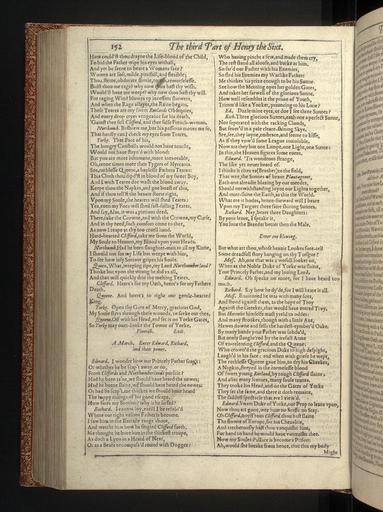 152 The third Part of Henry the Sixt.
How could'st thou drayne the Life-blood of the Child,
To bid the Father wipe his eyes withall,
And yet be seene to beare a Womans face?
Women are soft, milde, pittifull, and flexible;
Thou, sterne, obdurate, flintie, rough, remorselesse.
Bidst thou me rage? why now thou hast thy wish.
Would'st haue me weepe? why now thou hast thy will.
For raging Wind blowes vp incessant showers,
And when the Rage allayes, the Raine begins.
These Teares are my sweet Rutlands Obsequies,
And euery drop cryes vengeance for his death,
'Gainst thee fell Clifford, and thee false French-woman.
Northumb. Beshrew me, but his passions moues me so,
That hardly can I check my eyes from Teares.
Yorke. That Face of his,
The hungry Caniballs would not haue toucht,
Would not haue stayn'd with blood:
But you are more inhumane, more inexorable,
Oh, tenne times more then Tygers of Hyrcania.
See, ruthlesse Queene, a haplesse Fathers Teares:
This Cloth thou dipd'st in blood of my sweet Boy,
And I with Teares doe wash the blood away.
Keepe thou the Napkin, and goe boast of this,
And if thou tell'st the heauie storie right,
Vpon my Soule, the hearers will shed Teares:
Yea, euen my Foes will shed fast-falling Teares,
And say, Alas, it was a pittious deed.
There, take the Crowne, and with the Crowne, my Curse,
And in thy need, such comfort come to thee,
As now I reape at thy too cruell hand.
Hard-hearted Clifford, take me from the World,
My Soule to Heauen, my Blood vpon your Heads.
Northumb. Had he been slaughter-man to all my Kinne,
I should not for my Life but weepe with him,
To see how inly Sorrow gripes his Soule.
Queen. What, weeping ripe, my Lord Northumberland?
Thinke but vpon the wrong he did vs all,
And that will quickly drie thy melting Teares.
Clifford. Heere's for my Oath, heere's for my Fathers
Death.
Queene. And heere's to right our gentle-hearted
King.
Yorke. Open thy Gate of Mercy, gracious God,
My Soule flyes through these wounds, to seeke out thee.
Queene. Off with his Head, and set it on Yorke Gates,
So Yorke may ouer-looke the Towne of Yorke.
Flourish. Exit.
A March. Enter Edward, Richard,
and their power.
Edward. I wonder how our Princely Father scap't:
Or whether he be scap't away, or no,
From Cliffords and Northumberlands pursuit?
Had he been ta'ne, we should haue heard the newes;
Had he beene slaine, we should haue heard the newes:
Or had he scap't, me thinkes we should haue heard
The happy tidings of his good escape.
How fares my Brother? why is he so sad?
Richard. I cannot ioy, vntill I be resolu'd
Where our right valiant Father is become.
I saw him in the Battaile range about,
And watcht him how he singled Clifford forth.
Me thought he bore him in the thickest troupe,
As doth a Lyon in a Heard of Neat,
Or as a Beare encompass'd round with Dogges:
Who hauing pincht a few, and made them cry,
The rest stand all aloofe, and barke at him.
So far'd our Father with his Enemies,
So fled his Enemies my Warlike Father:
Me thinkes 'tis prize enough to be his Sonne.
See how the Morning opes her golden Gates,
And takes her farwell of the glorious Sunne.
How well resembles it the prime of Youth,
Trimm'd like a Yonker, prauncing to his Loue?
Ed. Dazle mine eyes, or doe I see three Sunnes?
Rich. Three glorious Sunnes, each one a perfect Sunne,
Not seperated with the racking Clouds,
But seuer'd in a pale cleare-shining Skye.
See, see, they ioyne, embrace, and seeme to kisse,
As if they vow'd some League inuiolable.
Now are they but one Lampe, one Light, one Sunne:
In this, the Heauen figures some euent.
Edward. 'Tis wondrous strange,
The like yet neuer heard of.
I thinke it cites vs (Brother) to the field,
That wee, the Sonnes of braue Plantagenet,
Each one alreadie blazing by our meedes,
Should notwithstanding ioyne our Lights together,
And ouer-shine the Earth, as this the World.
What ere it bodes, hence-forward will I beare
Vpon my Targuet three faire shining Sunnes.
Richard. Nay, beare three Daughters:
By your leaue, I speake it,
You loue the Breeder better then the Male.
Enter one blowing.
But what art thou, whose heauie Lookes fore-tell
Some dreadfull story hanging on thy Tongue?
Mess. Ah, one that was a wofull looker on,
When as the Noble Duke of Yorke was slaine,
Your Princely Father, and my louing Lord.
Edward. Oh speake no more, for I haue heard too
much.
Richard. Say how he dy'de, for I will heare it all.
Mess. Enuironed he was with many foes,
And stood against them, as the hope of Troy
Against the Greekes, that would haue entred Troy.
But Hercules himselfe must yeeld to oddes:
And many stroakes, though with a little Axe,
Hewes downe and fells the hardest-tymber'd Oake.
By many hands your Father was subdu'd,
But onely slaught'red by the irefull Arme
Of vn-relenting Clifford, and the Queene:
Who crown'd the gracious Duke in high despight,
Laugh'd in his face: and when with griefe he wept,
The ruthlesse Queene gaue him, to dry his Cheekes,
A Napkin, steeped in the harmelesse blood
Of sweet young Rutland, by rough Clifford slaine:
And after many scornes, many foule taunts,
They tooke his Head, and on the Gates of Yorke
They set the same, and there it doth remaine,
The saddest spectacle that ere I view'd.
Edward. Sweet Duke of Yorke, our Prop to leane vpon,
Now thou art gone, wee haue no Staffe, no Stay.
Oh Clifford, boyst'rous Clifford, thou hast slaine
The flowre of Europe, for his Cheualrie,
And trecherously hast thou vanquisht him,
For hand to hand he would haue vanquisht thee.
Now my Soules Pallace is become a Prison:
Ah, would she breake from hence, that this my body
Might